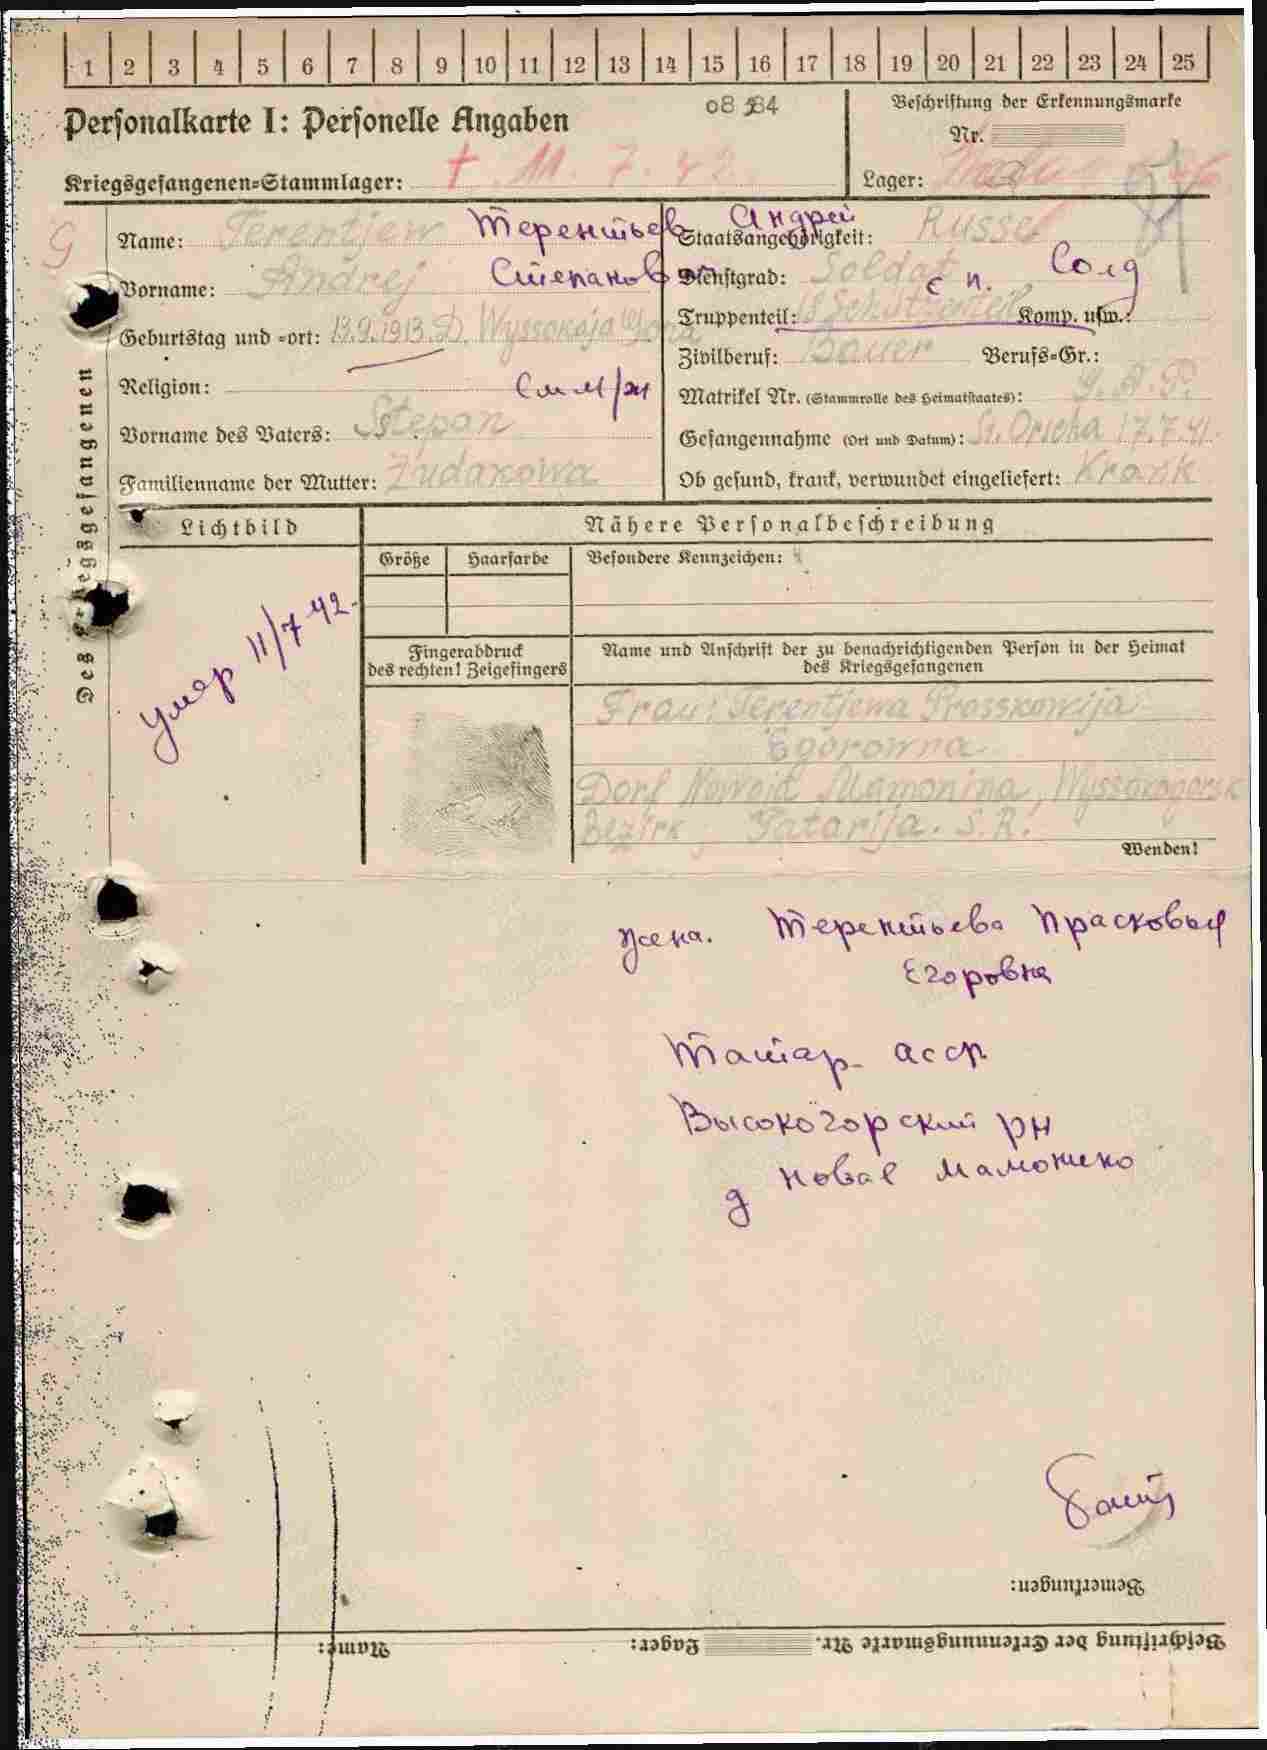 1 2 3 4 5 6 7 8 9 10 11 12 13 14 15 16 17 18 19 20 21 22 23 24 25
Personalkarte I: Personelle Angaben
Kriegsgefangenen=Stammlager: † 11. 7. 42.
Beschriftung der Erkennungsmarke
Nr.
Lager:
Des Kriegsgefangenen
Name: Terentjew Терентьев Андрей
Vorname: Andrej Степанов
Geburtstag und =ort: 13.9.1913. D. Wyssokaja Gora
Religion:
Vorname des Vaters: Sstepan
Familienname der Mutter: Zudakowa
Staatsangehörigkeit: Russe
Dienstgrad: Soldat с п. Солд
Truppenteil: 18 Komp. usw.:
Zivilberuf: Bauer Berufs=Gr.:
Matrikel Nr. (Stammrolle des Heimatstaates):
Gefangennahme (Ort und Datum): St. Orscha 17.7.41.
Ob gesund, krank, verwundet eingeliefert: Krank
Lichtbild
умер 11/7 42.
Nähere Personalbeschreibung
Größe Haarfarbe Besondere Kennzeichen:
Fingerabdruck
des rechten! Zeigefingers
Name und Anschrift der zu benachrichtigenden Person in der Heimat
des Kriegsgefangenen
Frau: Terentjewa Prosskowija
Egorowna
Dorf Nowoja Mamonina, Wyssokogorsk
Bezirk, Tatarija. S.R.
Wenden!
жена. Терентьева Прасковья
Егоровна
Татар. асср
Высокогорский рн
д Новае Мамонино
Bemerkungen:
Beschriftung der Erkennungsmarke Nr. Lager: Name: